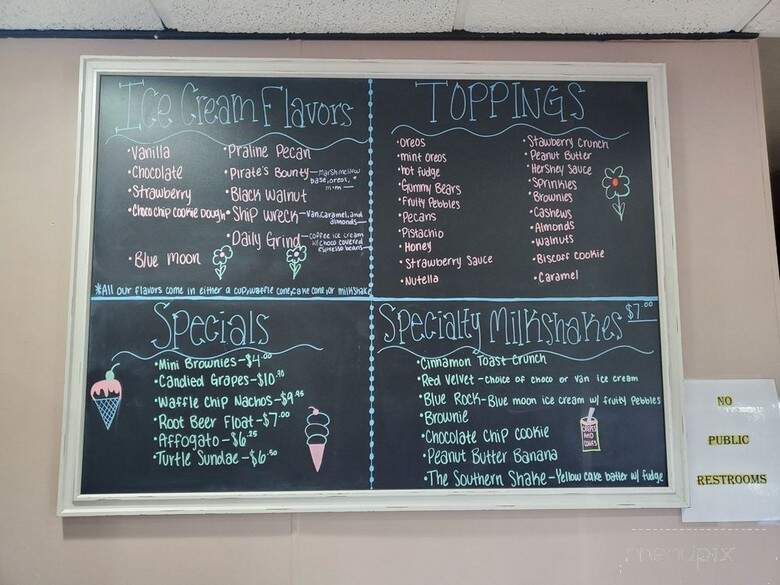 Ice Cream Flavors
•Vanilla
•Chocolate
•Strawberry
•Choco chip cookie Dough
•Blue Moon
•Praline Pecan
•Pirate's Bounty—Marshmellow
base, oreos,
m+m—
•Black Walnut
•Ship Wreck—Van, caramel, and
almonds—
•Daily Grind—coffee ice cream
w/ choco covered
espresso beans—
*All our flavors come in either a cup, waffle cone, cake cone, or milkshake
TOPPINGS
•Oreos
•mint oreos
•hot fudge
•Gummy Bears
•Fruity Pebbles
•Pecans
•Pistachio
•Honey
•Strawberry Sauce
•Nutella
•Stawberry Crunch
•Peanut Butter
•Hershey Sauce
•Sprinkles
•Brownies
•Cashews
•Almonds
•Walnuts
•Biscoff cookie
•Caramel
Specials
•Mini Brownies-$4.00
•Candied Grapes-$10.70
•Waffle Chip Nachos-$9.95
•Root Beer Float-$7.00
•Affogato-$6.25
•Turtle Sundae-$6.50
Specialty Milkshakes $7.00
•Cinnamon Toast Crunch
•Red Velvet-choice of choco or Van ice cream
•Blue Rock-Blue moon ice cream w/ fruity Pebbles
•Brownie
•Chocolate Chip cookie
•Peanut Butter Banana
•The Southern Shake-Yellow cake batter w/ fudge
NO
PUBLIC
RESTROOMS
menupix